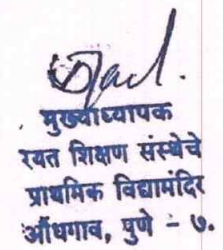 मुख्याध्यापक
रयत शिक्षण संस्थेचे
प्राथमिक विद्यामंदिर
औंधगाव, पुणे - ७.